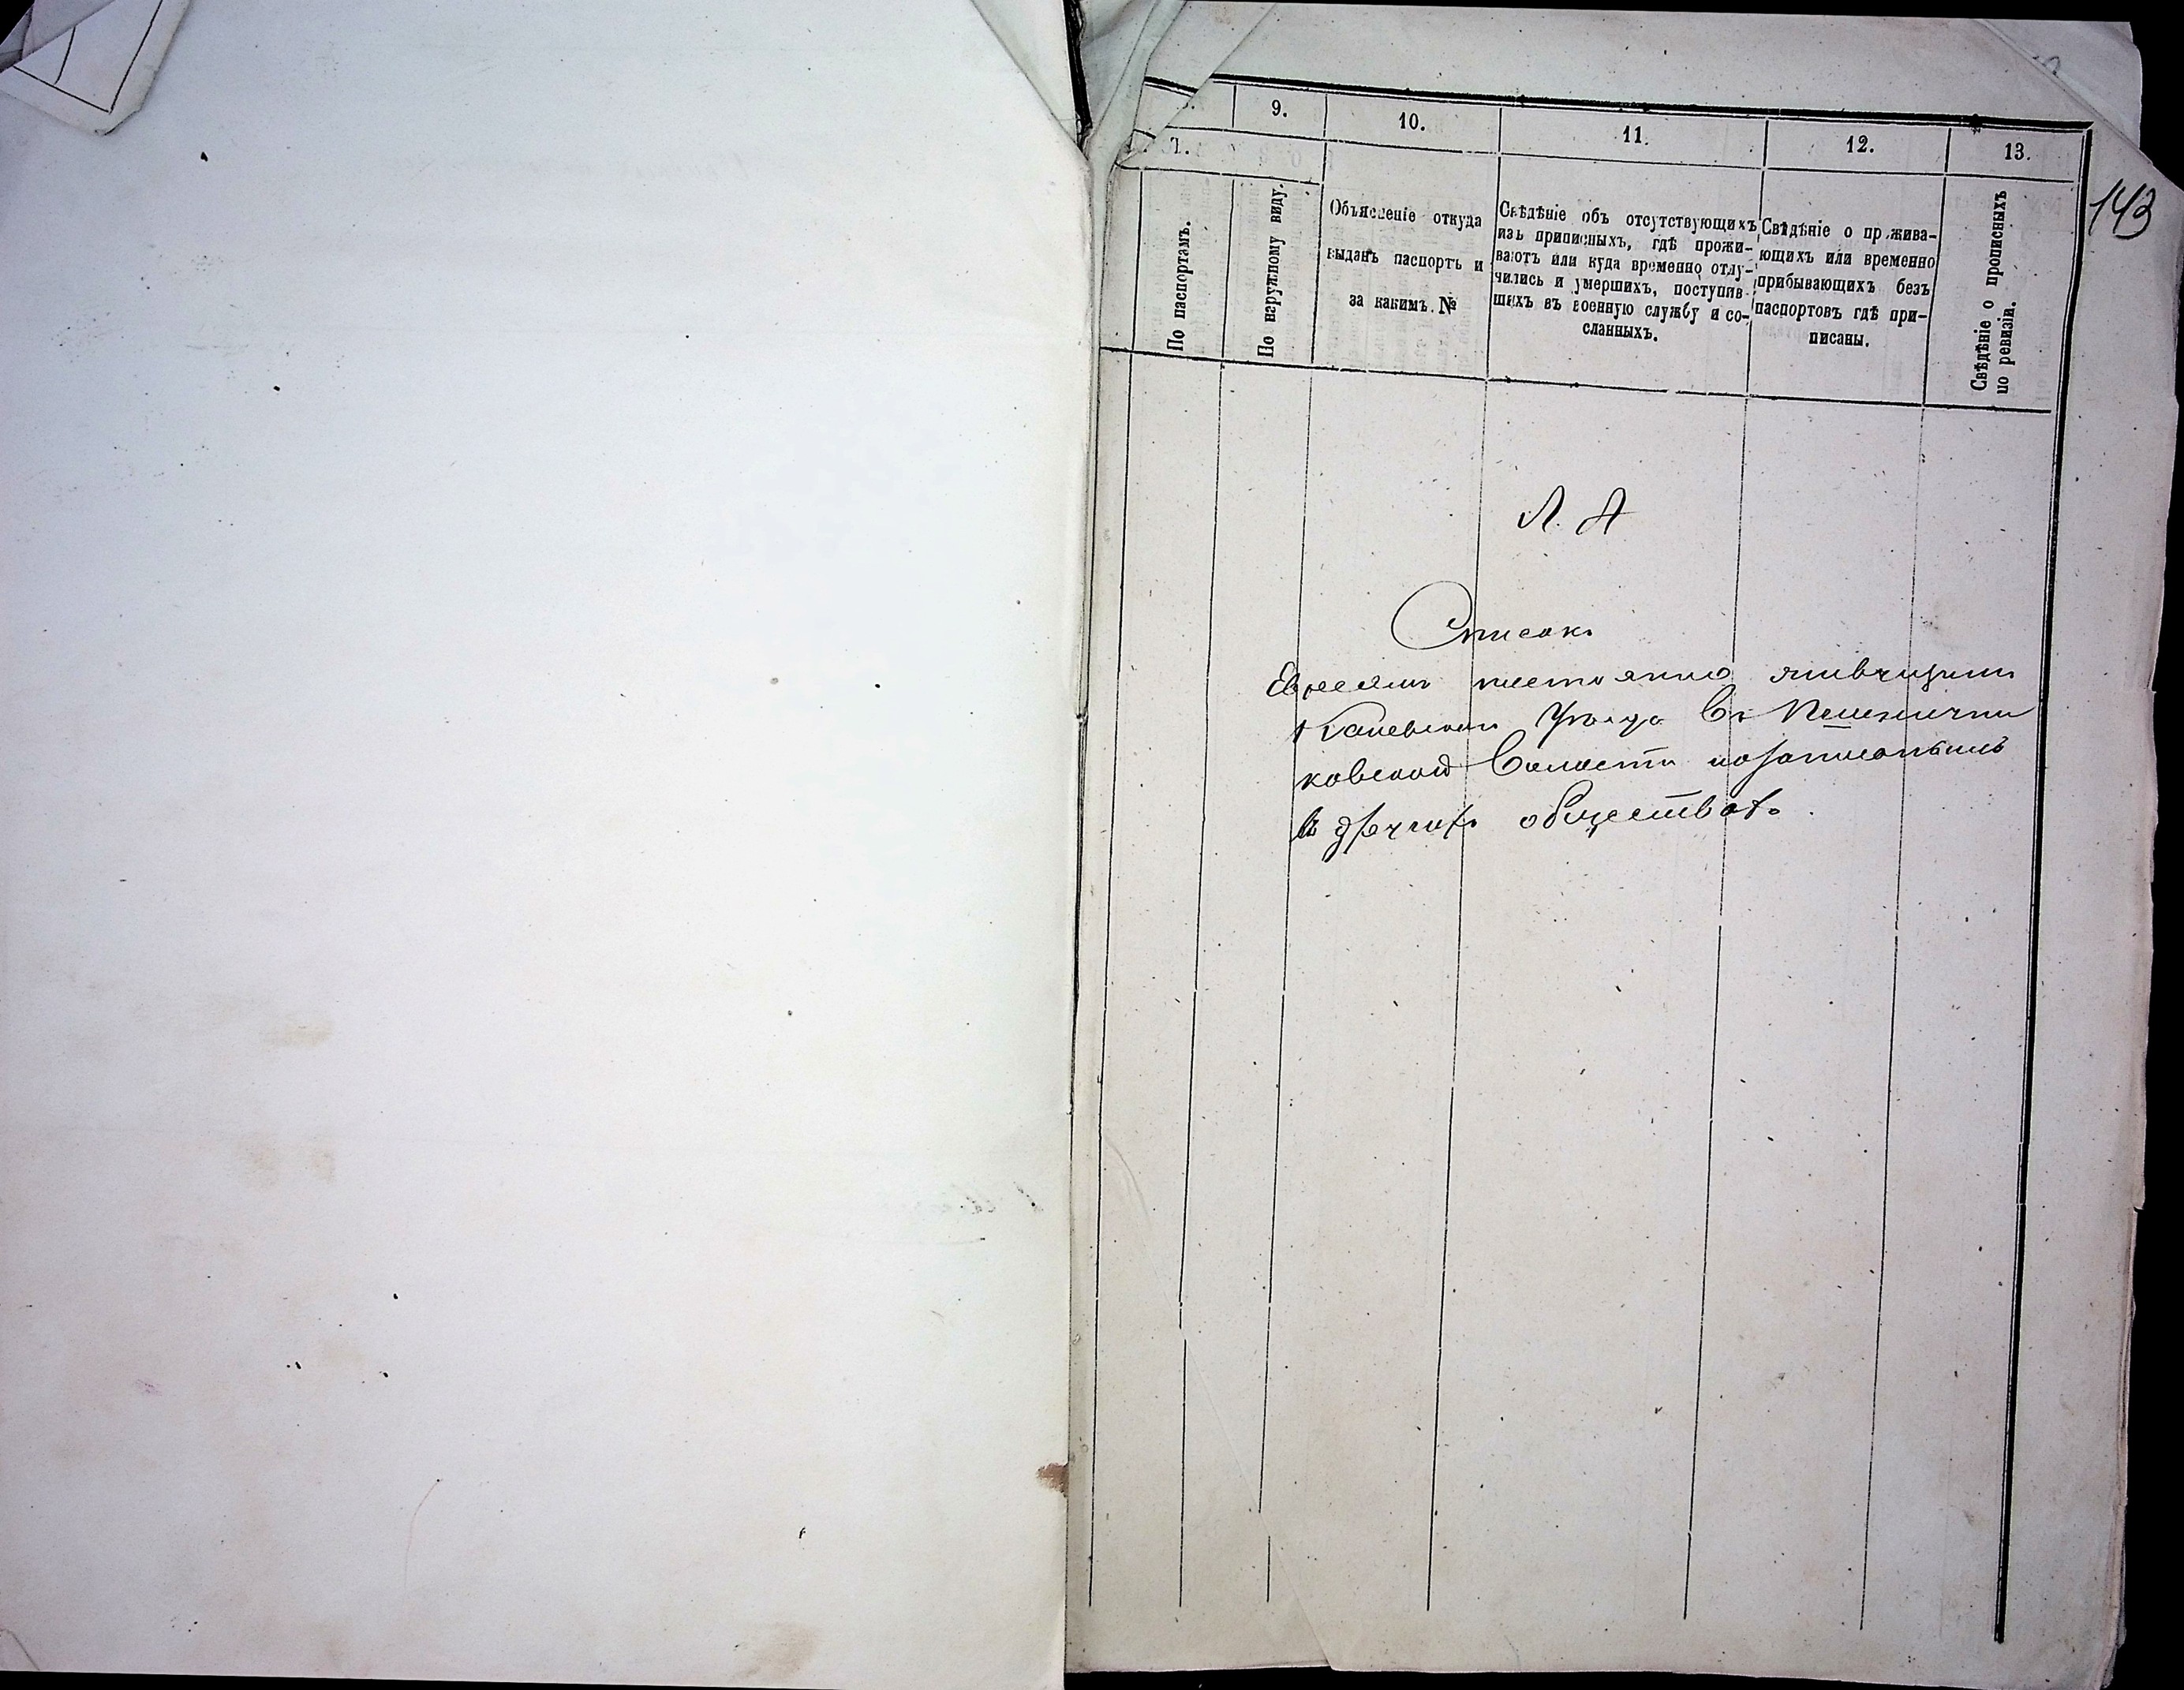 9.
10.
11.
12.
13.
143
По паспортамъ.
По наружному виду.
Объясненіе откуда
выданъ паспортъ и
за какимъ №
Свѣдѣніе объ отсутствующихъ
изъ приписныхъ, гдѣ прожи-
ваютъ или куда временно отлу-
чились и умершихъ, поступив-
шихъ въ военную службу и со-
сланныхъ.
Свѣдѣніе о прожива-
ющихъ или временно
прибывающихъ безъ
паспортовъ гдѣ при-
писаны.
Свѣдѣніе о прописныхъ
по ревизіи.
Л. А
Списокъ
Евреямъ постоянно живущимъ
Каневскаго Уѣзда въ Пшенични
ковской волости но записанымъ
въ другихъ обществахъ.